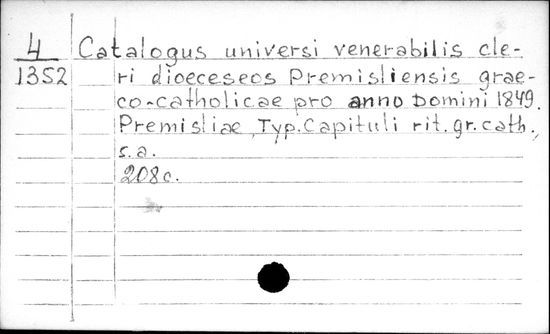 4 Catalogus universi venerabilis cle-
1352 ri dioeceseos Premisliensis grae-
co-catholicae pro anno Domini 1849.
Premisliae, Typ. Capituli rit. gr. cath.,
s.a.
208c.